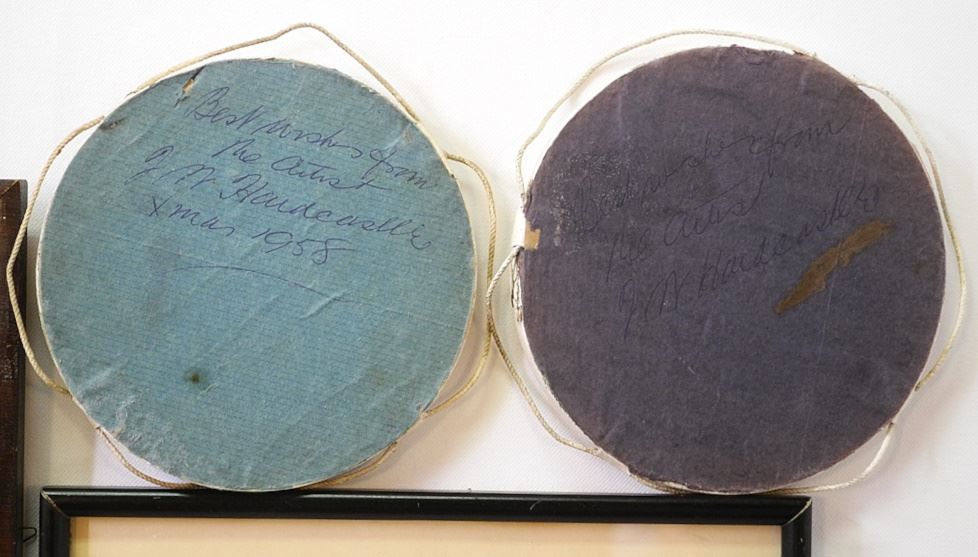 Best wishes from
the artist
J. W. Hardcastle
Xmas 1958
Best wishes from
the artist
J. W. Hardcastle